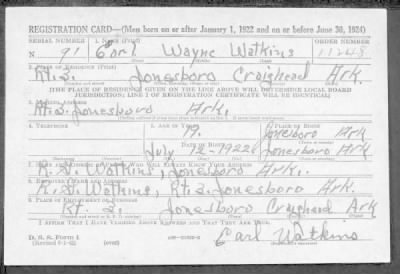 REGISTRATION CARD—(Men born on or after January 1, 1922 and on or before June 30, 1924)
SERIAL NUMBER 1. NAME (Print) ORDER NUMBER
N 91 Earl Wayne Watkins 11248
2. PLACE OF RESIDENCE (Print)
Rt. 2. Jonesboro Craighead Ark.
[THE PLACE OF RESIDENCE GIVEN ON THE LINE ABOVE WILL DETERMINE LOCAL BOARD
JURISDICTION; LINE 2 OF REGISTRATION CERTIFICATE WILL BE IDENTICAL]
3. MAILING ADDRESS
Rt. 2. Jonesboro Ark.
4. TELEPHONE 5. AGE IN YEARS 6. PLACE OF BIRTH
Jonesboro Ark
DATE OF BIRTH
July 12-1922 Jonesboro Ark
R. G. Watkins, Jonesboro Ark.
8. EMPLOYER'S NAME AND ADDRESS
R. G. Watkins, Rt. 2. Jonesboro Ark.
9. PLACE OF EMPLOYMENT OR BUSINESS
Rt. 2. Jonesboro Craighead Ark
I AFFIRM THAT I HAVE VERIFIED ABOVE ANSWERS AND THAT THEY ARE TRUE.
D. S. S. Form 1
(over)
Earl Watkins